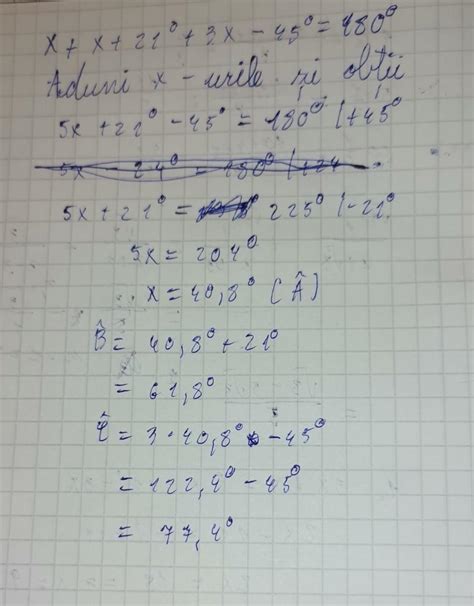 x + x + 21° + 3x - 45° = 180°
Aduni x-urile și obții
5x + 21° - 45° = 180° |+45°
5x - 24° = 180° |+24
5x + 21° = 225° |-21°
5x = 204°
x = 40,8° (Â)
B̂ = 40,8° + 21°
= 61,8°
Ĉ = 3·40,8° - 45°
= 122,4° - 45°
= 77,4°